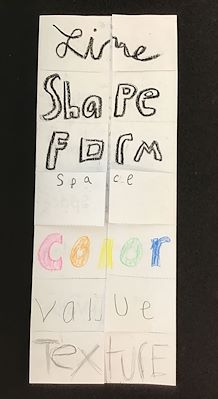 Line
Shape
FORM
Space
Color
value
TexTURE